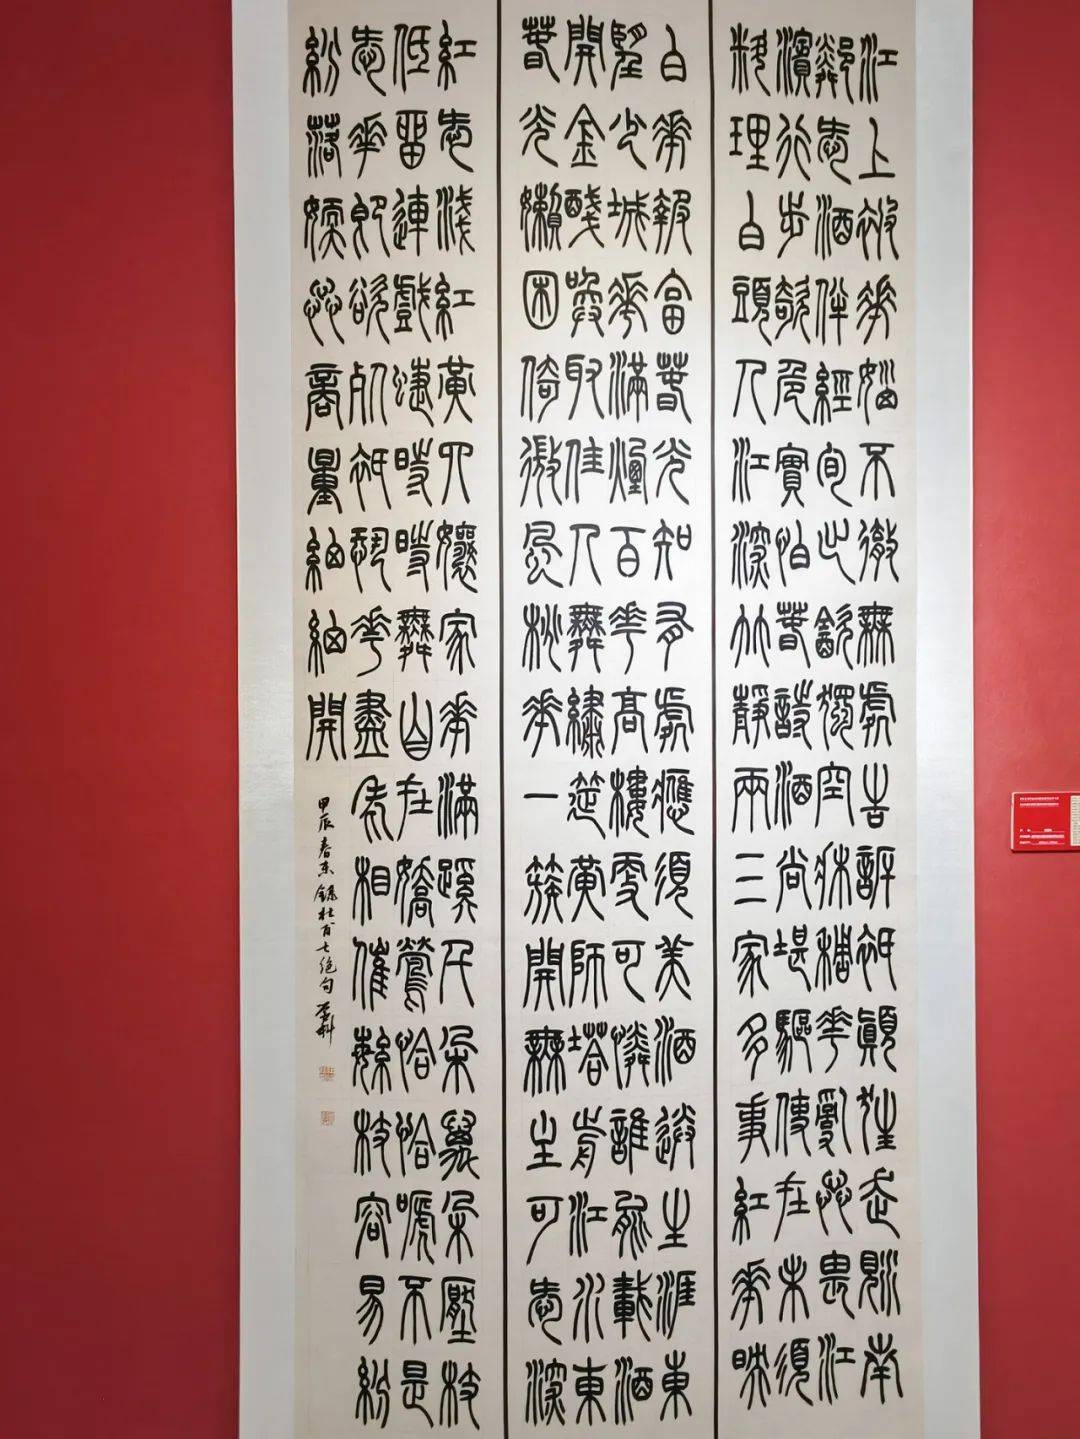 江上被花惱不徹無處告訴祇顛狂走覓南
鄰愛酒伴經旬出飲獨空牀稠花亂蕊畏江
濱行步欹危實怕春詩酒尚堪驅使在未須
料理白頭人江深竹靜兩三家多事紅花映
白花報富春光知有處應須美酒送生涯東
望少城花滿煙百花高樓更可憐誰能載酒
開金盞喚取佳人舞繡筵黃師塔前江水東
春光懶困倚微風桃花一簇開無主可愛深
紅愛淺紅黃四娘家花滿蹊千朵萬朵壓枝
低留連戲蝶時時舞自在嬌鶯恰恰啼不是
愛花即欲死祇恐花盡老相催繁枝容易紛
紛落嫩蕊商量細細開
甲辰春 錄杜甫七絕句